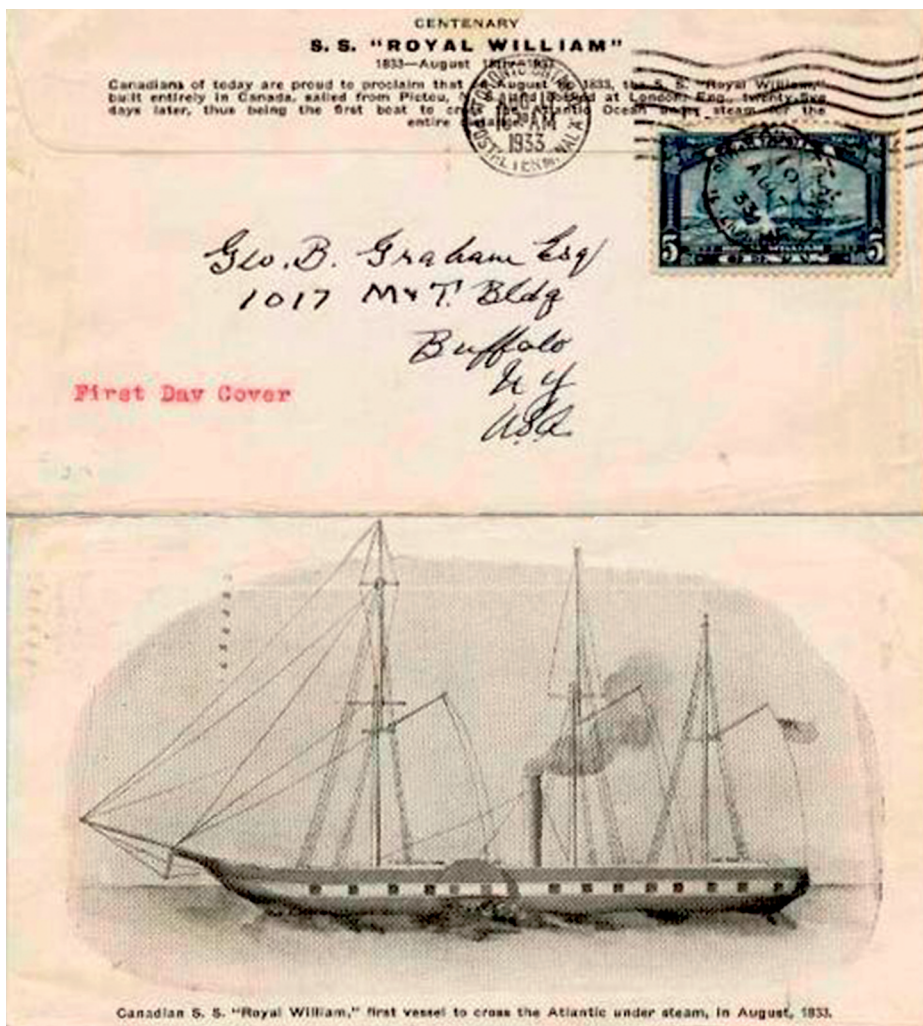 CENTENARY
S. S. "ROYAL WILLIAM"
1833—August
Canadians of today are proud to proclaim that on August 18, 1833, the S. S. "Royal William,"
built entirely in Canada, sailed from Pictou, N. S. and docked at London, Eng., twenty-five
days later, thus being the first boat to cross the Atlantic Ocean under steam for the
entire distance.
TORONTO ONTARIO
10 AM
1933
POSTAL TERMINAL A
5 5
Geo. B. Graham Esq
1017 M & T. Bldg
Buffalo
N Y
USA
First Day Cover
Canadian S. S. "Royal William," first vessel to cross the Atlantic under steam, in August, 1833.